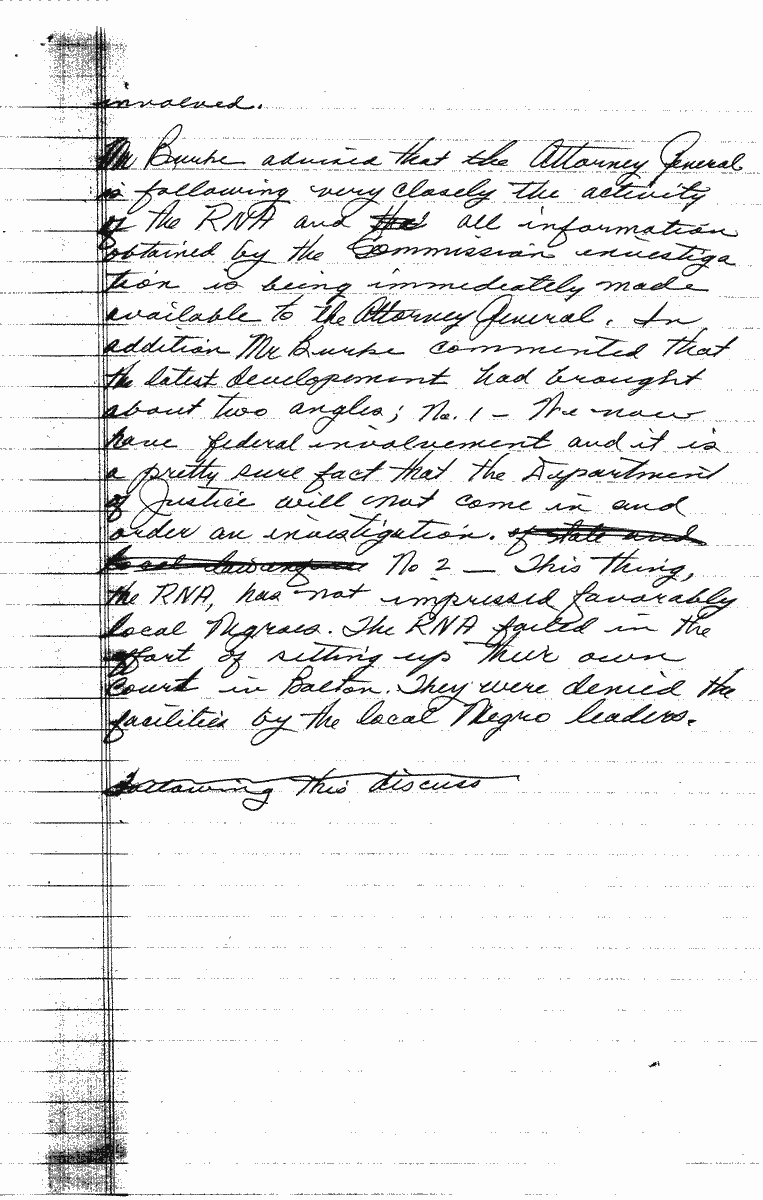 involved.
Mr Burke advised that the Attorney General
is following very closely the activity
of the RNA and that all information
obtained by the Commission investiga
tion is being immediately made
available to the Attorney General. In
addition Mr Burke commented that
the latest developement had brought
about two angles; No. 1 - We now
have federal involvement and it is
a pretty sure fact that the Department
of Justice will not come in and
order an investigation. of state and
local No 2 — This thing,
the RNA, has not impressed favorably
local Negroes. The RNA failed in the
effort of setting up their own
Court in Bolton. They were denied the
facilities by the local Negro leaders.
Following this discuss